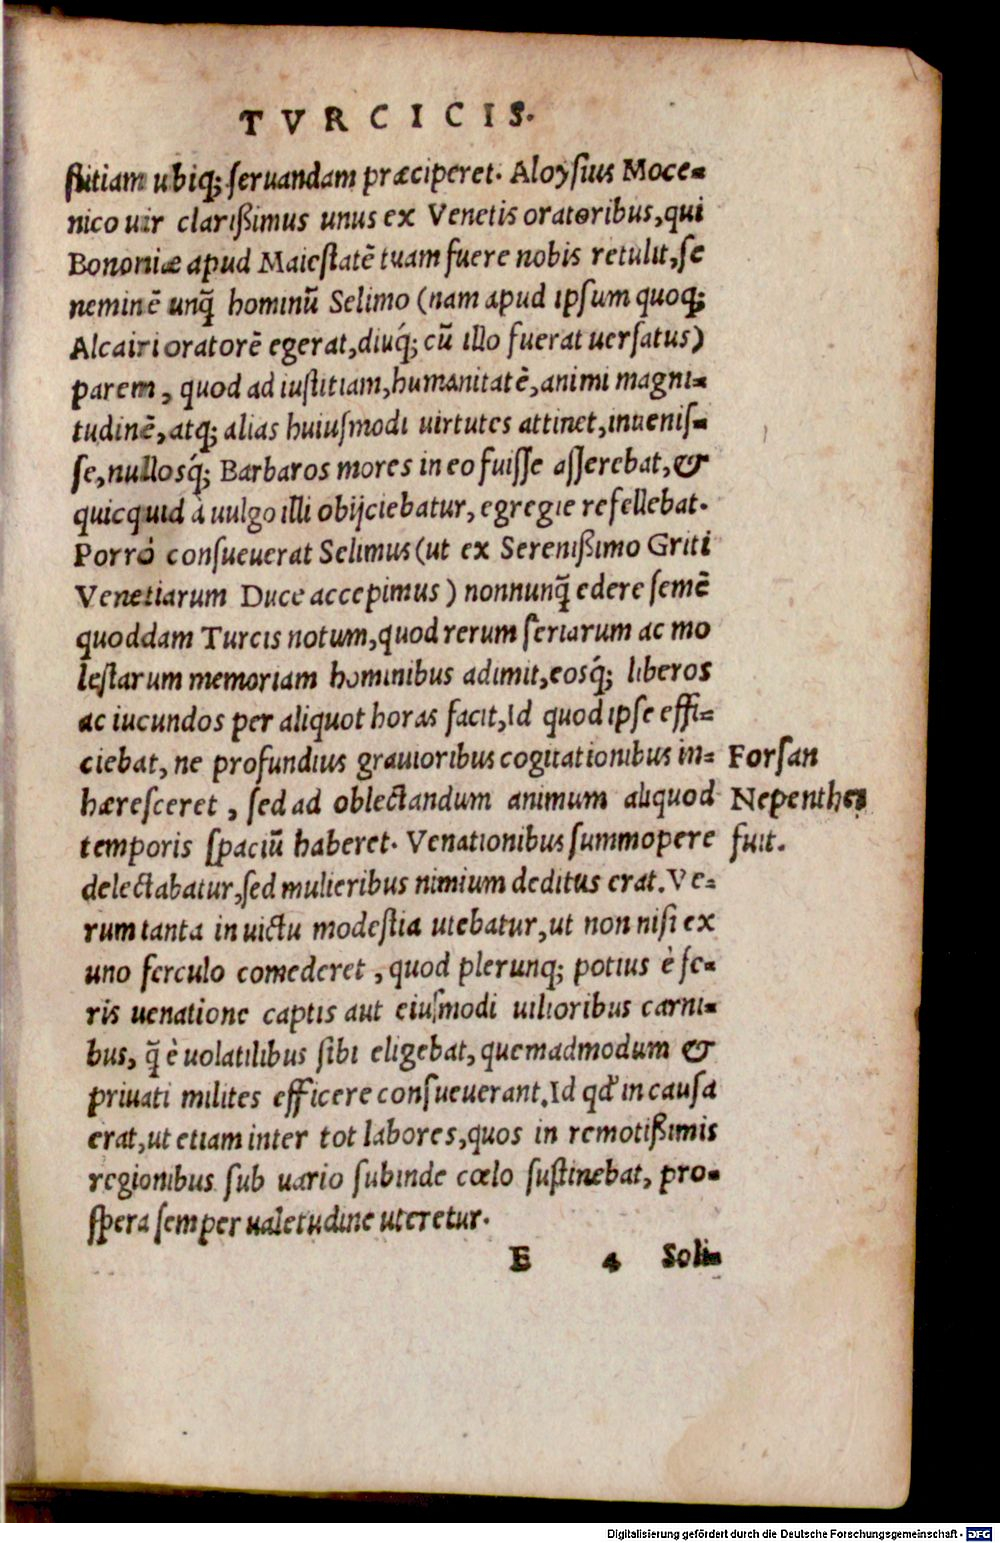 TVRCICIS.
ſtitiam ubiq; ſeruandam præciperet. Aloyſius Moce-
nico uir clarißimus unus ex Venetis oratoribus, qui
Bononiæ apud Maieſtatē tuam fuere nobis retulit, ſe
neminē unq̃ hominū Selimo (nam apud ipſum quoq;
Alcairi oratorē egerat, diuq́; cū illo fuerat uerſatus)
parem, quod ad iuſtitiam, humanitatē, animi magni-
tudinē, atq; alias huiuſmodi uirtutes attinet, inueniſ-
ſe, nulloſq́; Barbaros mores in eo fuiſſe aſſerebat, &
quicquid à uulgo illi obijciebatur, egregie refellebat.
Porrò conſueuerat Selimus (ut ex Serenißimo Griti
Venetiarum Duce accepimus) nonnunq̃ edere ſemē
quoddam Turcis notum, quod rerum ſeriarum ac mo
leſtarum memoriam hominibus adimit, eosq́; liberos
ac iucundos per aliquot horas facit, Id quod ipſe effi-
ciebat, ne profundius grauioribus cogitationibus in-
hæreſceret, ſed ad oblectandum animum aliquod
temporis ſpaciū haberet. Venationibus ſummopere
delectabatur, ſed mulieribus nimium deditus erat. Ve-
rum tanta in uictu modeſtia utebatur, ut non niſi ex
uno ferculo comederet, quod plerunq; potius è fe-
ris uenatione captis aut eiuſmodi uilioribus carni-
bus, q̃ è uolatilibus ſibi eligebat, quemadmodum &
priuati milites efficere conſueuerant. Id qđ in cauſa
erat, ut etiam inter tot labores, quos in remotißimis
regionibus ſub uario ſubinde cœlo ſuſtinebat, pro-
ſpera ſemper ualetudine uteretur.
Forſan
Nepenthes
fuit.
E 4 Soli-
Digitalisierung gefördert durch die Deutsche Forschungsgemeinschaft - DFG